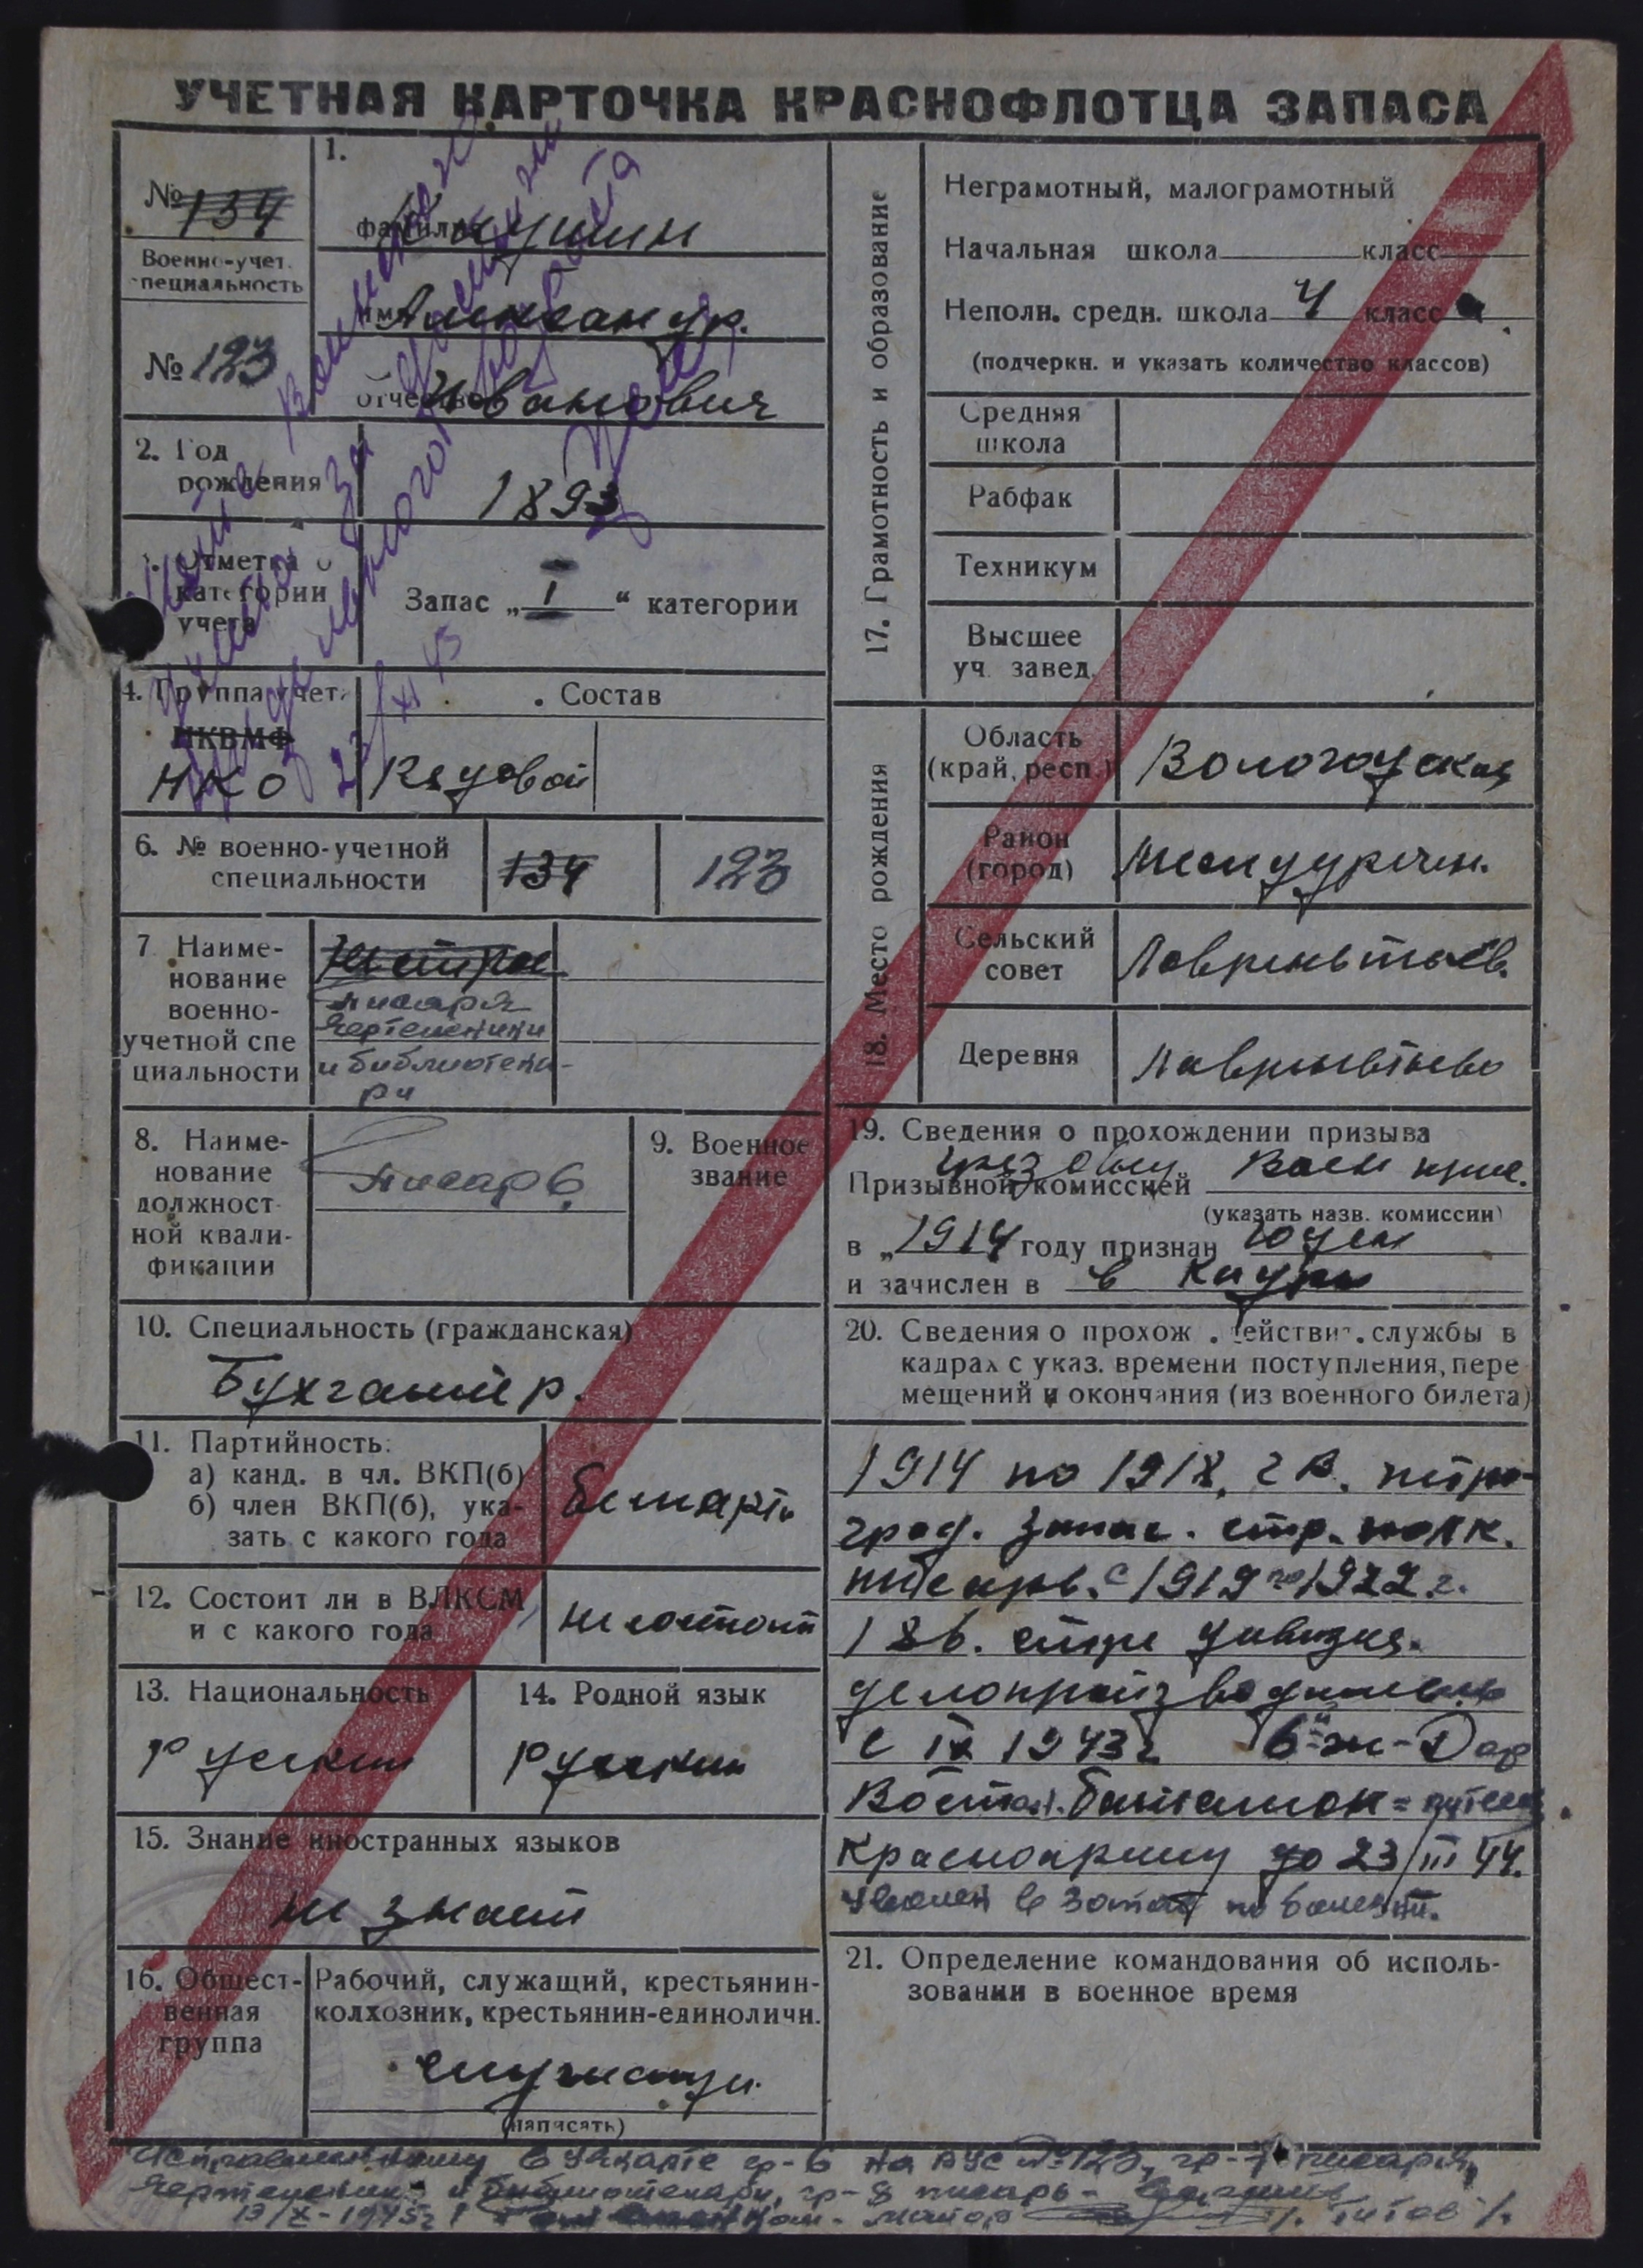 УЧЕТНАЯ КАРТОЧКА КРАСНОФЛОТЦА ЗАПАСА
№ 134
Военно-учет.
специальность
№ 123
1.
фамилия
имя Александр.
отчество Иванович
2. Год
рождения
1893
3. Отметка о
категории
учета
Запас „ I “ категории
23/XI 45
4. Группа учета
НКВМФ
НКО
Состав
Рядовой
6. № военно-учетной
специальности
134
123
7. Наиме-
нование
военно-
учетной спе
циальности
писаря
чертежники
и библиотека-
ри
8. Наиме-
нование
должност
ной квали-
фикации
писарь
9. Военное
звание
10. Специальность (гражданская)
Бухгалтер.
11. Партийность:
а) канд. в чл. ВКП(б)
б) член ВКП(б), ука-
зать с какого года
беспарти
12. Состоит ли в ВЛКСМ
и с какого года
не состоит
13. Национальность
русский
14. Родной язык
русский
15. Знание иностранных языков
не знает
16. Общест-
венная
группа
Рабочий, служащий, крестьянин-
колхозник, крестьянин-единоличн.
служащи.
(написать)
17. Грамотность и образование
Неграмотный, малограмотный
Начальная школа класс
Неполн. средн. школа 4 класса.
(подчеркн. и указать количество классов)
Средняя
школа
Рабфак
Техникум
Высшее
уч. завед.
18. Место рождения
Область
(край, респ.)
Вологодская
Район
(город)
Междуречен.
Сельский
совет
Лаврентьев.
Деревня
Лаврентьево
19. Сведения о прохождении призыва
Призывной комиссией
(указать назв. комиссии)
в „1914 году признан годен
и зачислен в в кадры
20. Сведения о прохож. действит. службы в
кадрах с указ. времени поступления, пере
мещений и окончания (из военного билета)
1914 по 1918, г в. петро-
град. запас. стр. полк.
писарь. с 1919 по 1922 г.
186. стре дивизия.
делопроизводитель
с IX 1943 г 6й ж-Дор
Востан. батальон = путеец
Красноармеец до 23/III 44.
уволен в запас по болезни.
21. Определение командования об исполь-
зовании в военное время
в учкарте гр-6 на ВУС № 123, гр-7 писаря,
чертежники и библиотекари, гр-8 писарь -
13/X-1945г. Титов /.